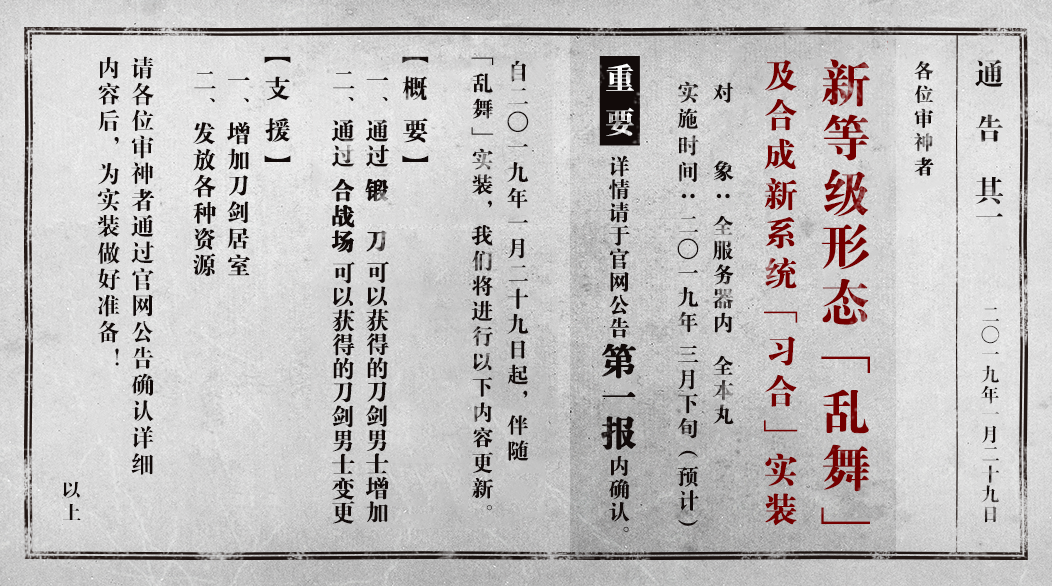 通告 其一 二〇一九年一月二十九日
各位审神者
新等级形态「乱舞」
及合成新系统「习合」实装
对 象：全服务器内 全本丸
实施时间：二〇一九年 三月下旬（预计）
重要 详情请于官网公告第一报内确认。
自二〇一九年一月二十九日起，伴随
「乱舞」实装，我们将进行以下内容更新。
【概要】
一、通过 锻 刀 可以获得的刀剑男士增加
二、通过 合战场 可以获得的刀剑男士变更
【支援】
一、增加刀剑居室
二、发放各种资源
请各位审神者通过官网公告确认详细
内容后，为实装做好准备！
以上